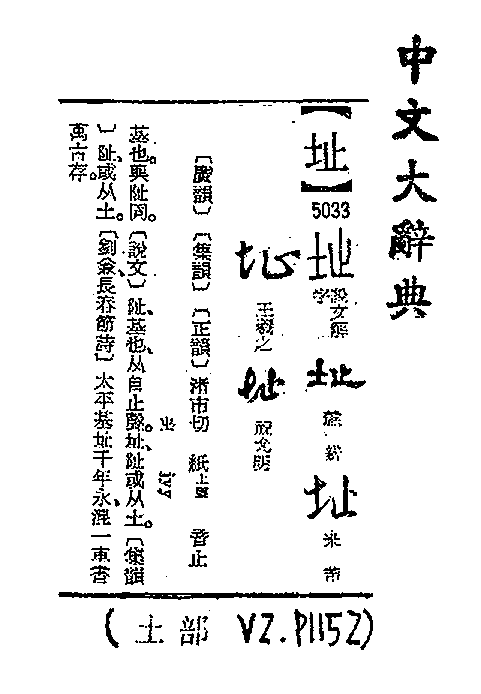 中文大辭典
【址】
5033
址
說文篆字
址
址
米芾
址
王羲之
址
祝允明
〔廣韻〕〔集韻〕〔正韻〕渚市切 紙上聲 音止
ㄓˇ jyy
基也。與阯同。〔說文〕阯、基也、从𨸏止聲。址、阯或从土。〔集韻
〕阯、或从土。〔劉兼、長春節詩〕太平基址千年永、混一車書
萬古存。
(土部 V2. P1152)